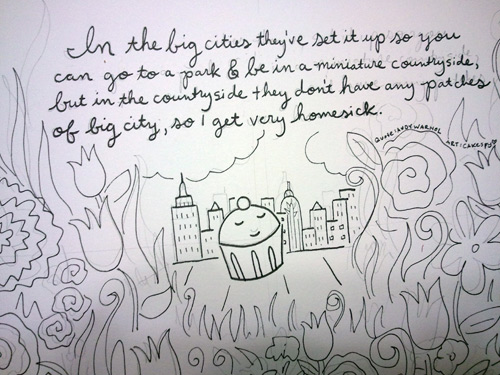 In the big cities they've set it up so you
can go to a park & be in a miniature countryside,
but in the countryside they don't have any patches
of big city, so I get very homesick.
QUOTE: ANDY WARHOL
ART: CAKESPY